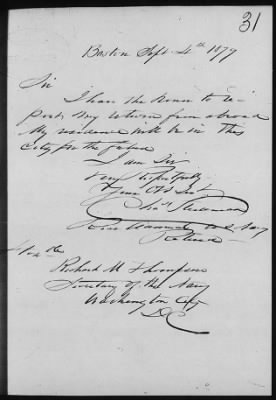 31
Boston Sept 4th 1879
Sir
I have the honor to re-
port my return from abroad
My residence will be in this
City for the future
I am Sir
Very Respectfully
Your Obt Svt
Chas Steedman
Rear Admiral U S Navy
Retired
Richard W Thompson
Secretary of the Navy
Washington City
D C